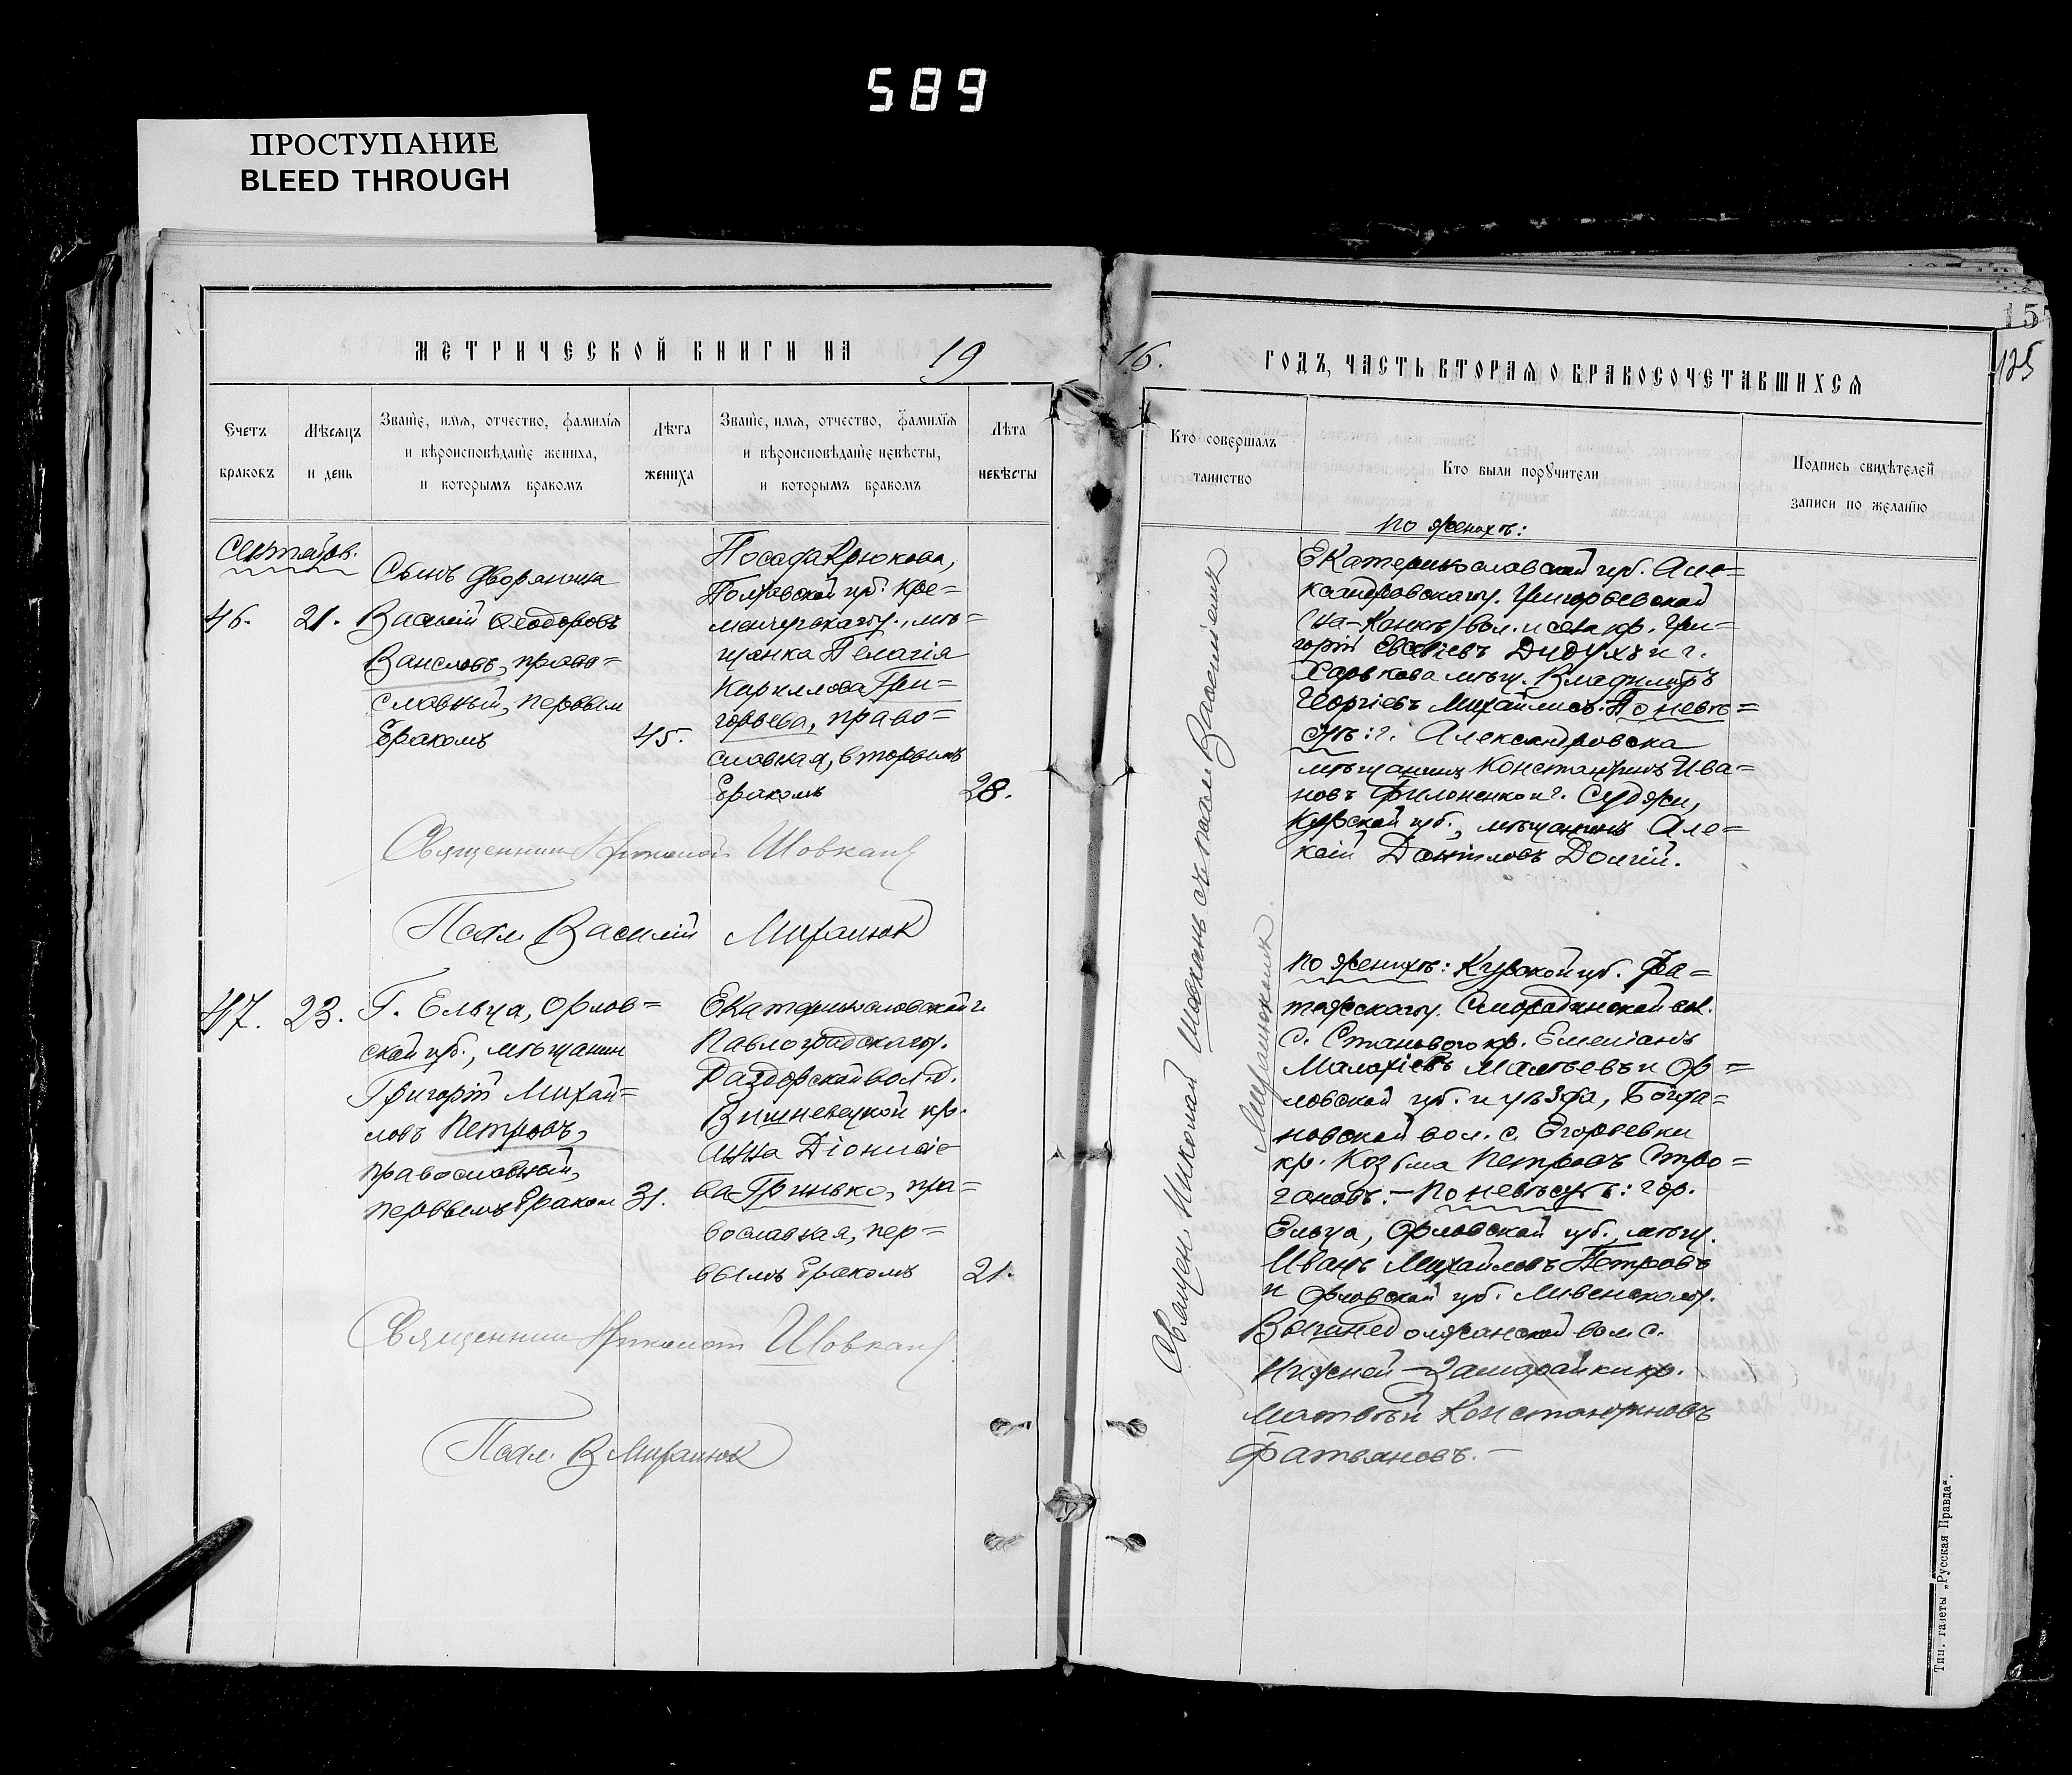 589
ПРОСТУПАНИЕ
BLEED THROUGH
МЕТРИЧЕСКОЙ КНИГИ НА 19
Счетъ браковъ
Мѣсяцъ и день
Званіе, имя, отчество, фамилія
и вѣроисповѣданіе жениха,
и которымъ бракомъ
Лѣта жениха
Званіе, имя, отчество, фамилія
и вѣроисповѣданіе невѣсты,
и которымъ бракомъ
Лѣта невѣсты
Сентябрь.
46.
21.
Сынъ дворянина
Василій Ѳеодоровъ
православный, первымъ
бракомъ
45.
Посада Крюкова,
Полтавской губ. Кре=
менчугскаго у., мѣ=
щанка Пелагія
Кириллова Гри=
горьева, право=
славная, вторымъ
бракомъ
28.
Священникъ Николай Шовкань
Псал. Василій
47.
23.
Г. Ельца, Орлов=
ской губ., мѣщанин
Григорій Михай=
ловъ Петровъ,
православный,
первымъ браком
31.
Екатеринославской г.
Павлоградскаго у.
Раздорской вол. д.
Вишневецкой кр.
Анна Діонисіе
ва Гринько, пра=
вославная, пер=
вымъ бракомъ
21.
Священникъ Николай Шовкань
Псал. В
16. ГОДЪ, ЧАСТЬ ВТОРАЯ О БРАКОСОЧЕТАВШИХСЯ
15
125
Кто совершалъ таинство
Кто были поручители
Подпись свидѣтелей
записи по желанію
Священ. Николай Шовкань съ псалом. Василіемъ
По женихѣ:
Екатеринославской губ. Але=
ксандровскаго у. Григорьевской
(на-Конкѣ) вол. и села кр. Гри=
горій Евсевіевъ Дидухъ и г.
Харькова мѣщ. Владиміръ
Георгіевъ Михайлисъ. По невѣ=
стѣ: г. Александровска
мѣщанинъ Константинъ Ива=
новъ Филоненко и г. Суджи,
Курской губ., мѣщанинъ Але=
ксій Даниловъ Долгій.
По женихѣ: Курской губ. Фа=
тежскаго у. Смородинской вол.
с. Становаго кр. Емеліанъ
и Ор=
ловской губ. и уѣзда, Богда=
новской вол. с. Егорьевки
кр. Козьма Петровъ Стро=
гановъ. — По невѣстѣ: гор.
Ельца, Орловской губ., мѣщ.
Иванъ Михайловъ Петровъ
и Орловской губ. Ливенскаго у.
вол. с.
Нижней-
Матвѣй Константиновъ
Фатьяновъ. —
Тип. газеты „Русская Правда“.